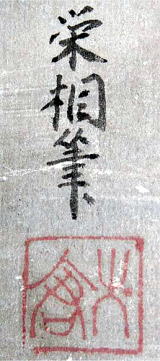 栄相筆